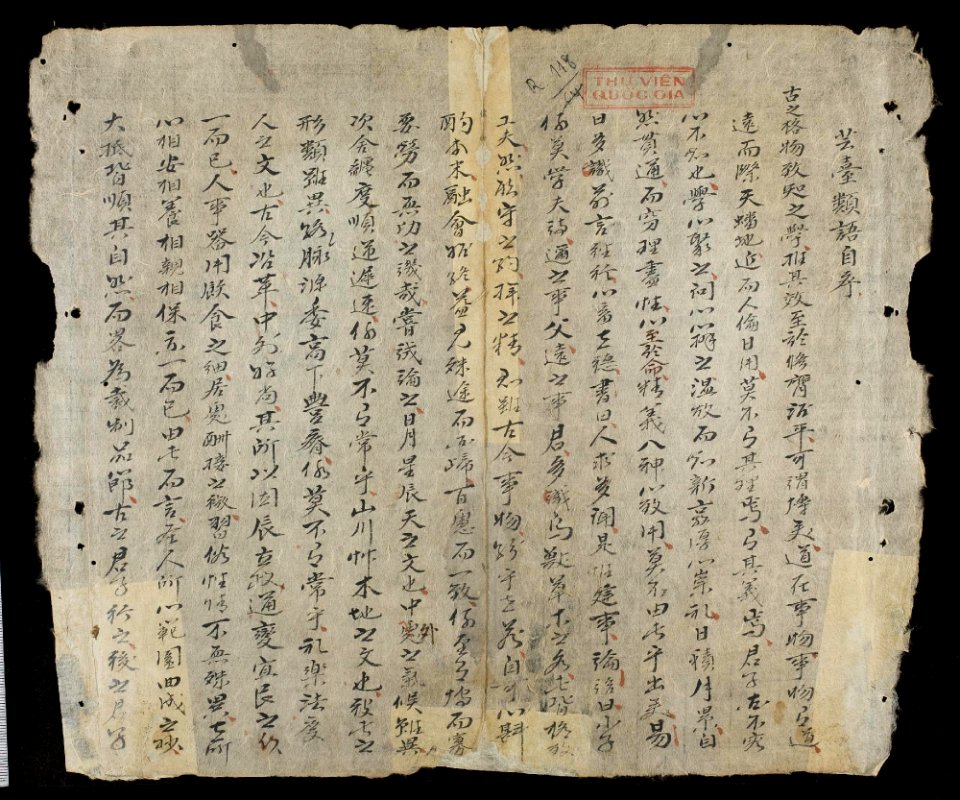 R 118
THƯ VIỆN
QUỐC GIA
芸臺類語自序
古之格物致知之學推其效至於修齊治平可謂博矣道在事物事物之道
遠而際天蟠地近而人倫日用莫不有其理焉有其義焉君子者不容
心不知也學以聚之問以辨之溫故而知新敦厚以崇礼日積月累自
然貫通而窮理盡性以至於命精義入神以致用莫不由此乎出矣易
曰多識前言徃行以畜其德書曰人求多聞是惟建事論語曰小子
何莫學夫詩邇之事父遠之事君多識鳥獸草木之名此皆格致
工夫然能守之約擇之精則雖古今事物紛乎其前自可以斟
酌本末融會始終並見殊途而同歸百慮而一致何至有博而寡
要勞而無功之譏哉嘗試論之日月星辰天之文也中外之氣候雖異
次舍躔度順逆遲速何莫不有常乎山川艸木地之文也彼此之
形類雖異路脉源委高下豐瘠何莫不有常乎礼樂法度
人之文也古今沿革中外好尚其所以因辰立政通變宜民之
一而已人事器用飲食之細居處酬接之微習俗性情不無殊異而所
以相安相養相親相保亦一而已由此而言聖人所以範圍曲成之妙
大抵皆順其自然而畧為裁制品節古之君子行之後之君子